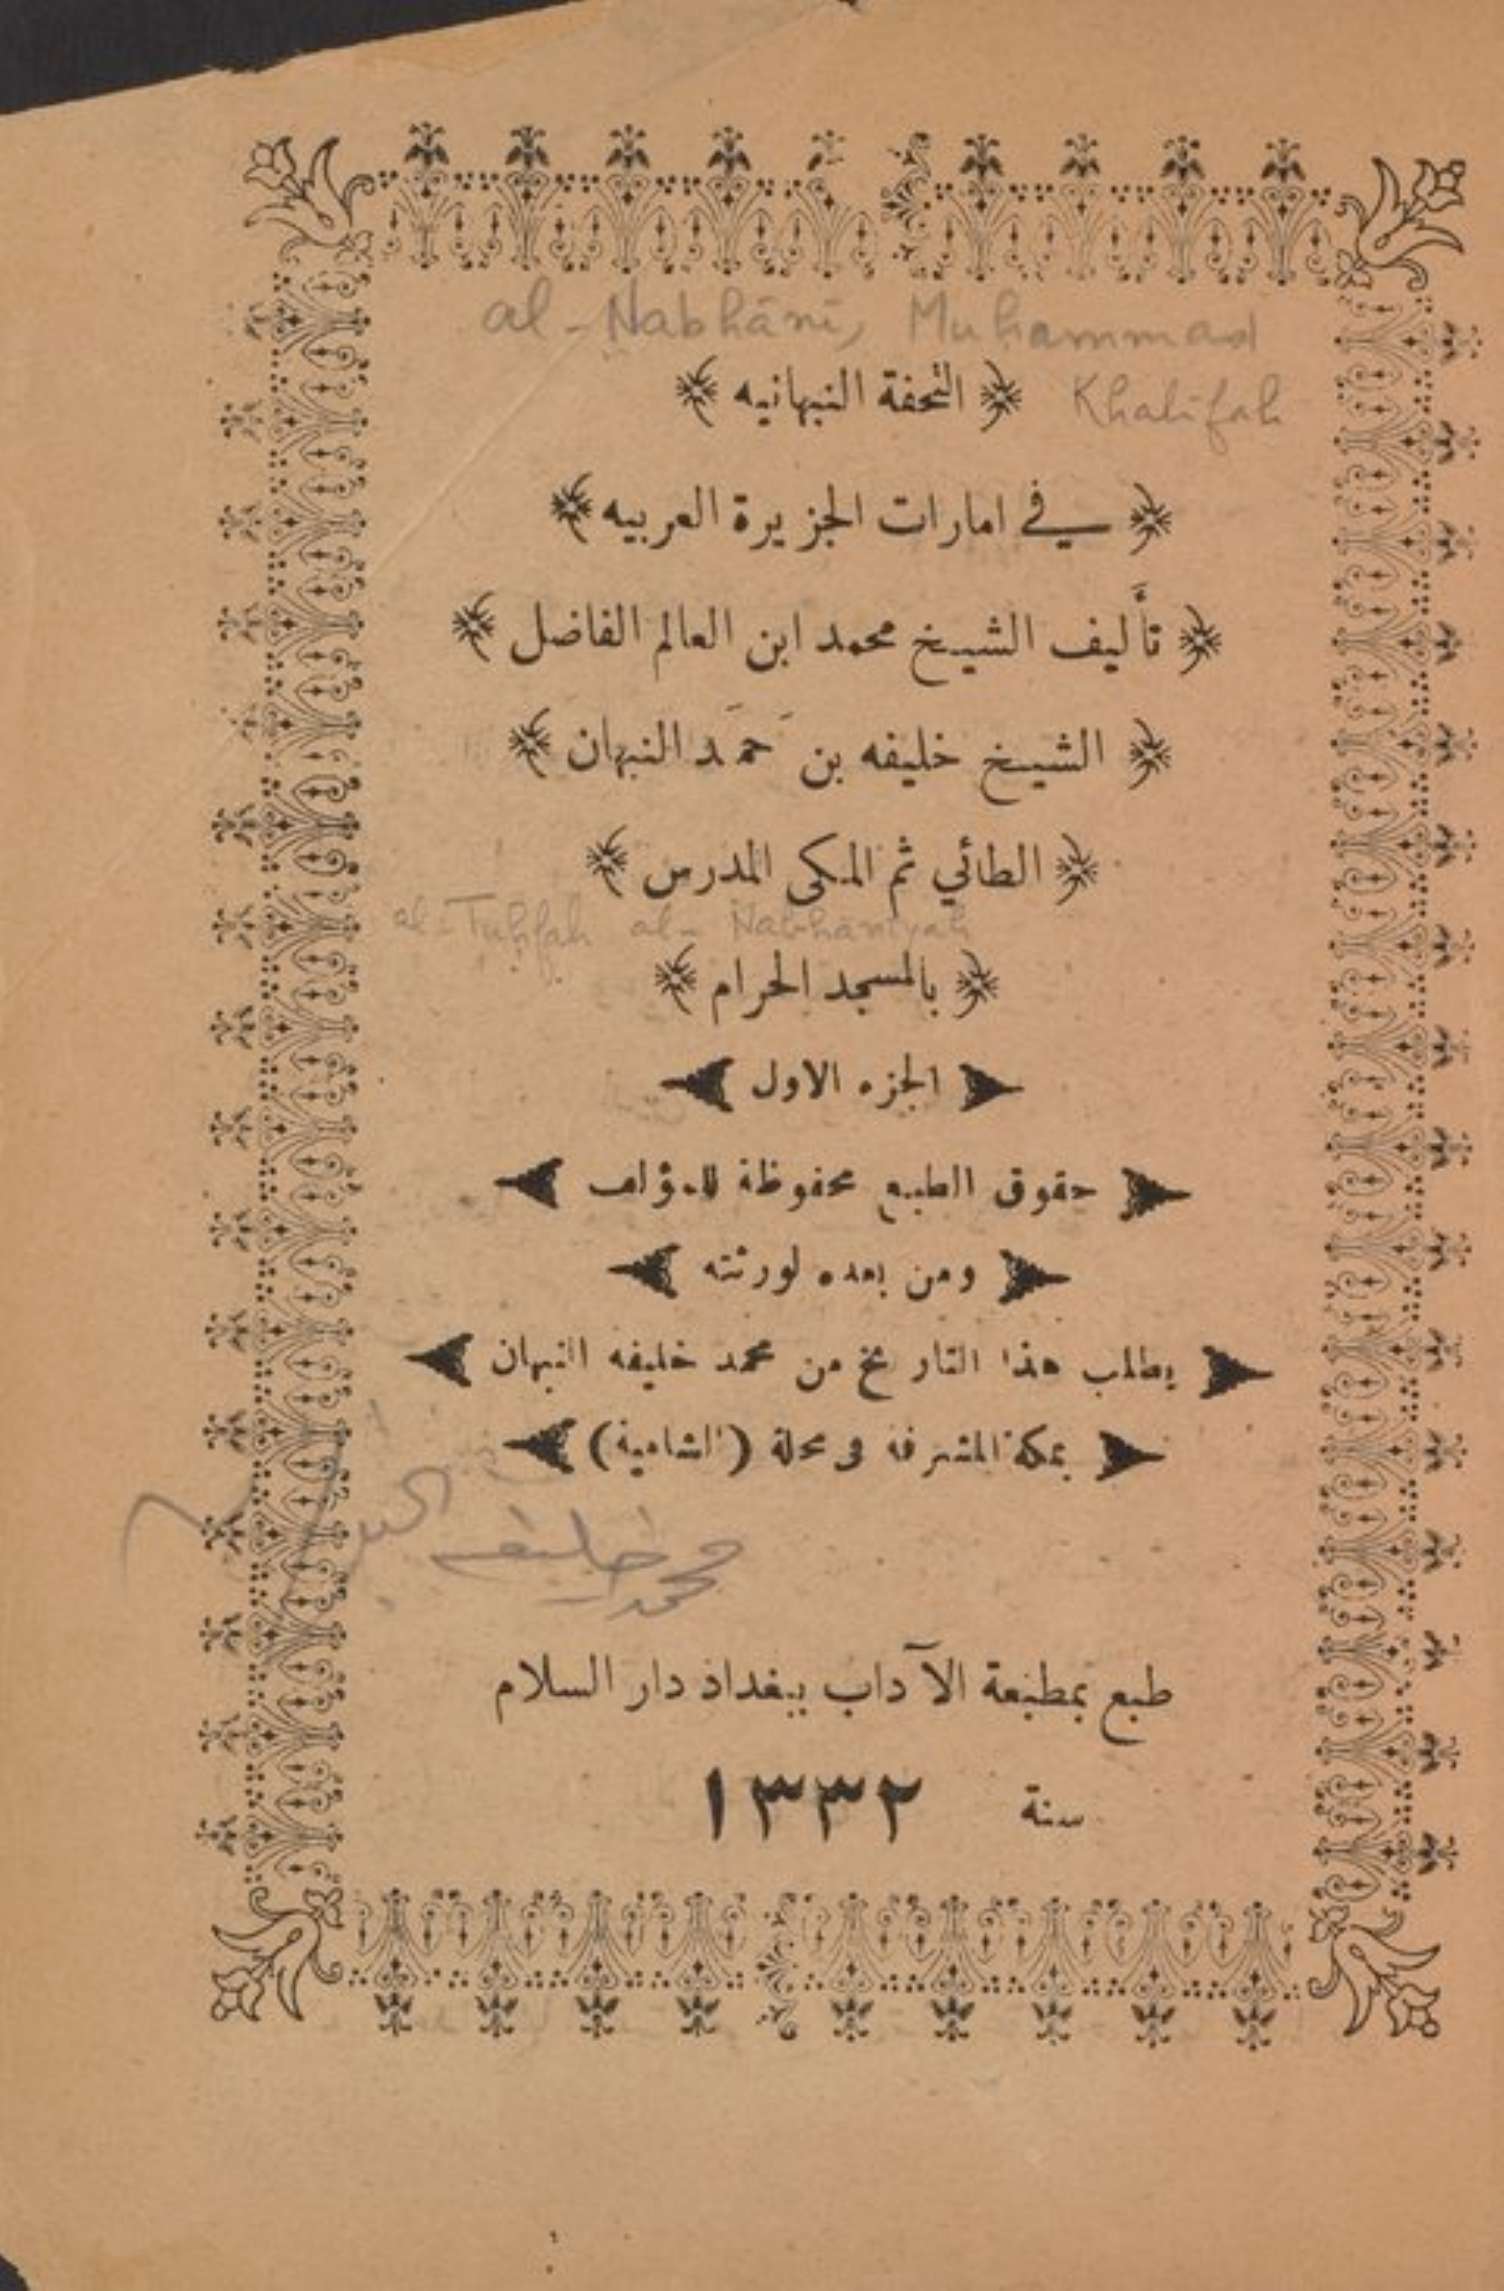 al-Nabhānī, Muhammad
Khalifah
﴿ التحفة النبهانيه ﴾
﴿ في امارات الجزيرة العربيه ﴾
﴿ تأليف الشيخ محمد ابن العالم الفاضل ﴾
﴿ الشيخ خليفه بن حَمَد النبهان ﴾
﴿ الطائي ثم المكى المدرس ﴾
al-Tuḥfah al-Nabhānīyah
﴿ بالمسجد الحرام ﴾
الجزء الاول
حقوق الطبع محفوظة للمؤلف
ومن بعده لورثته
يطلب هذا التاريخ من محمد خليفه النبهان
بمكة المشرفه فى محلة (الشامية)
محمد خليفه
طبع بمطبعة الآداب ببغداد دار السلام
سنة ١٣٣٢